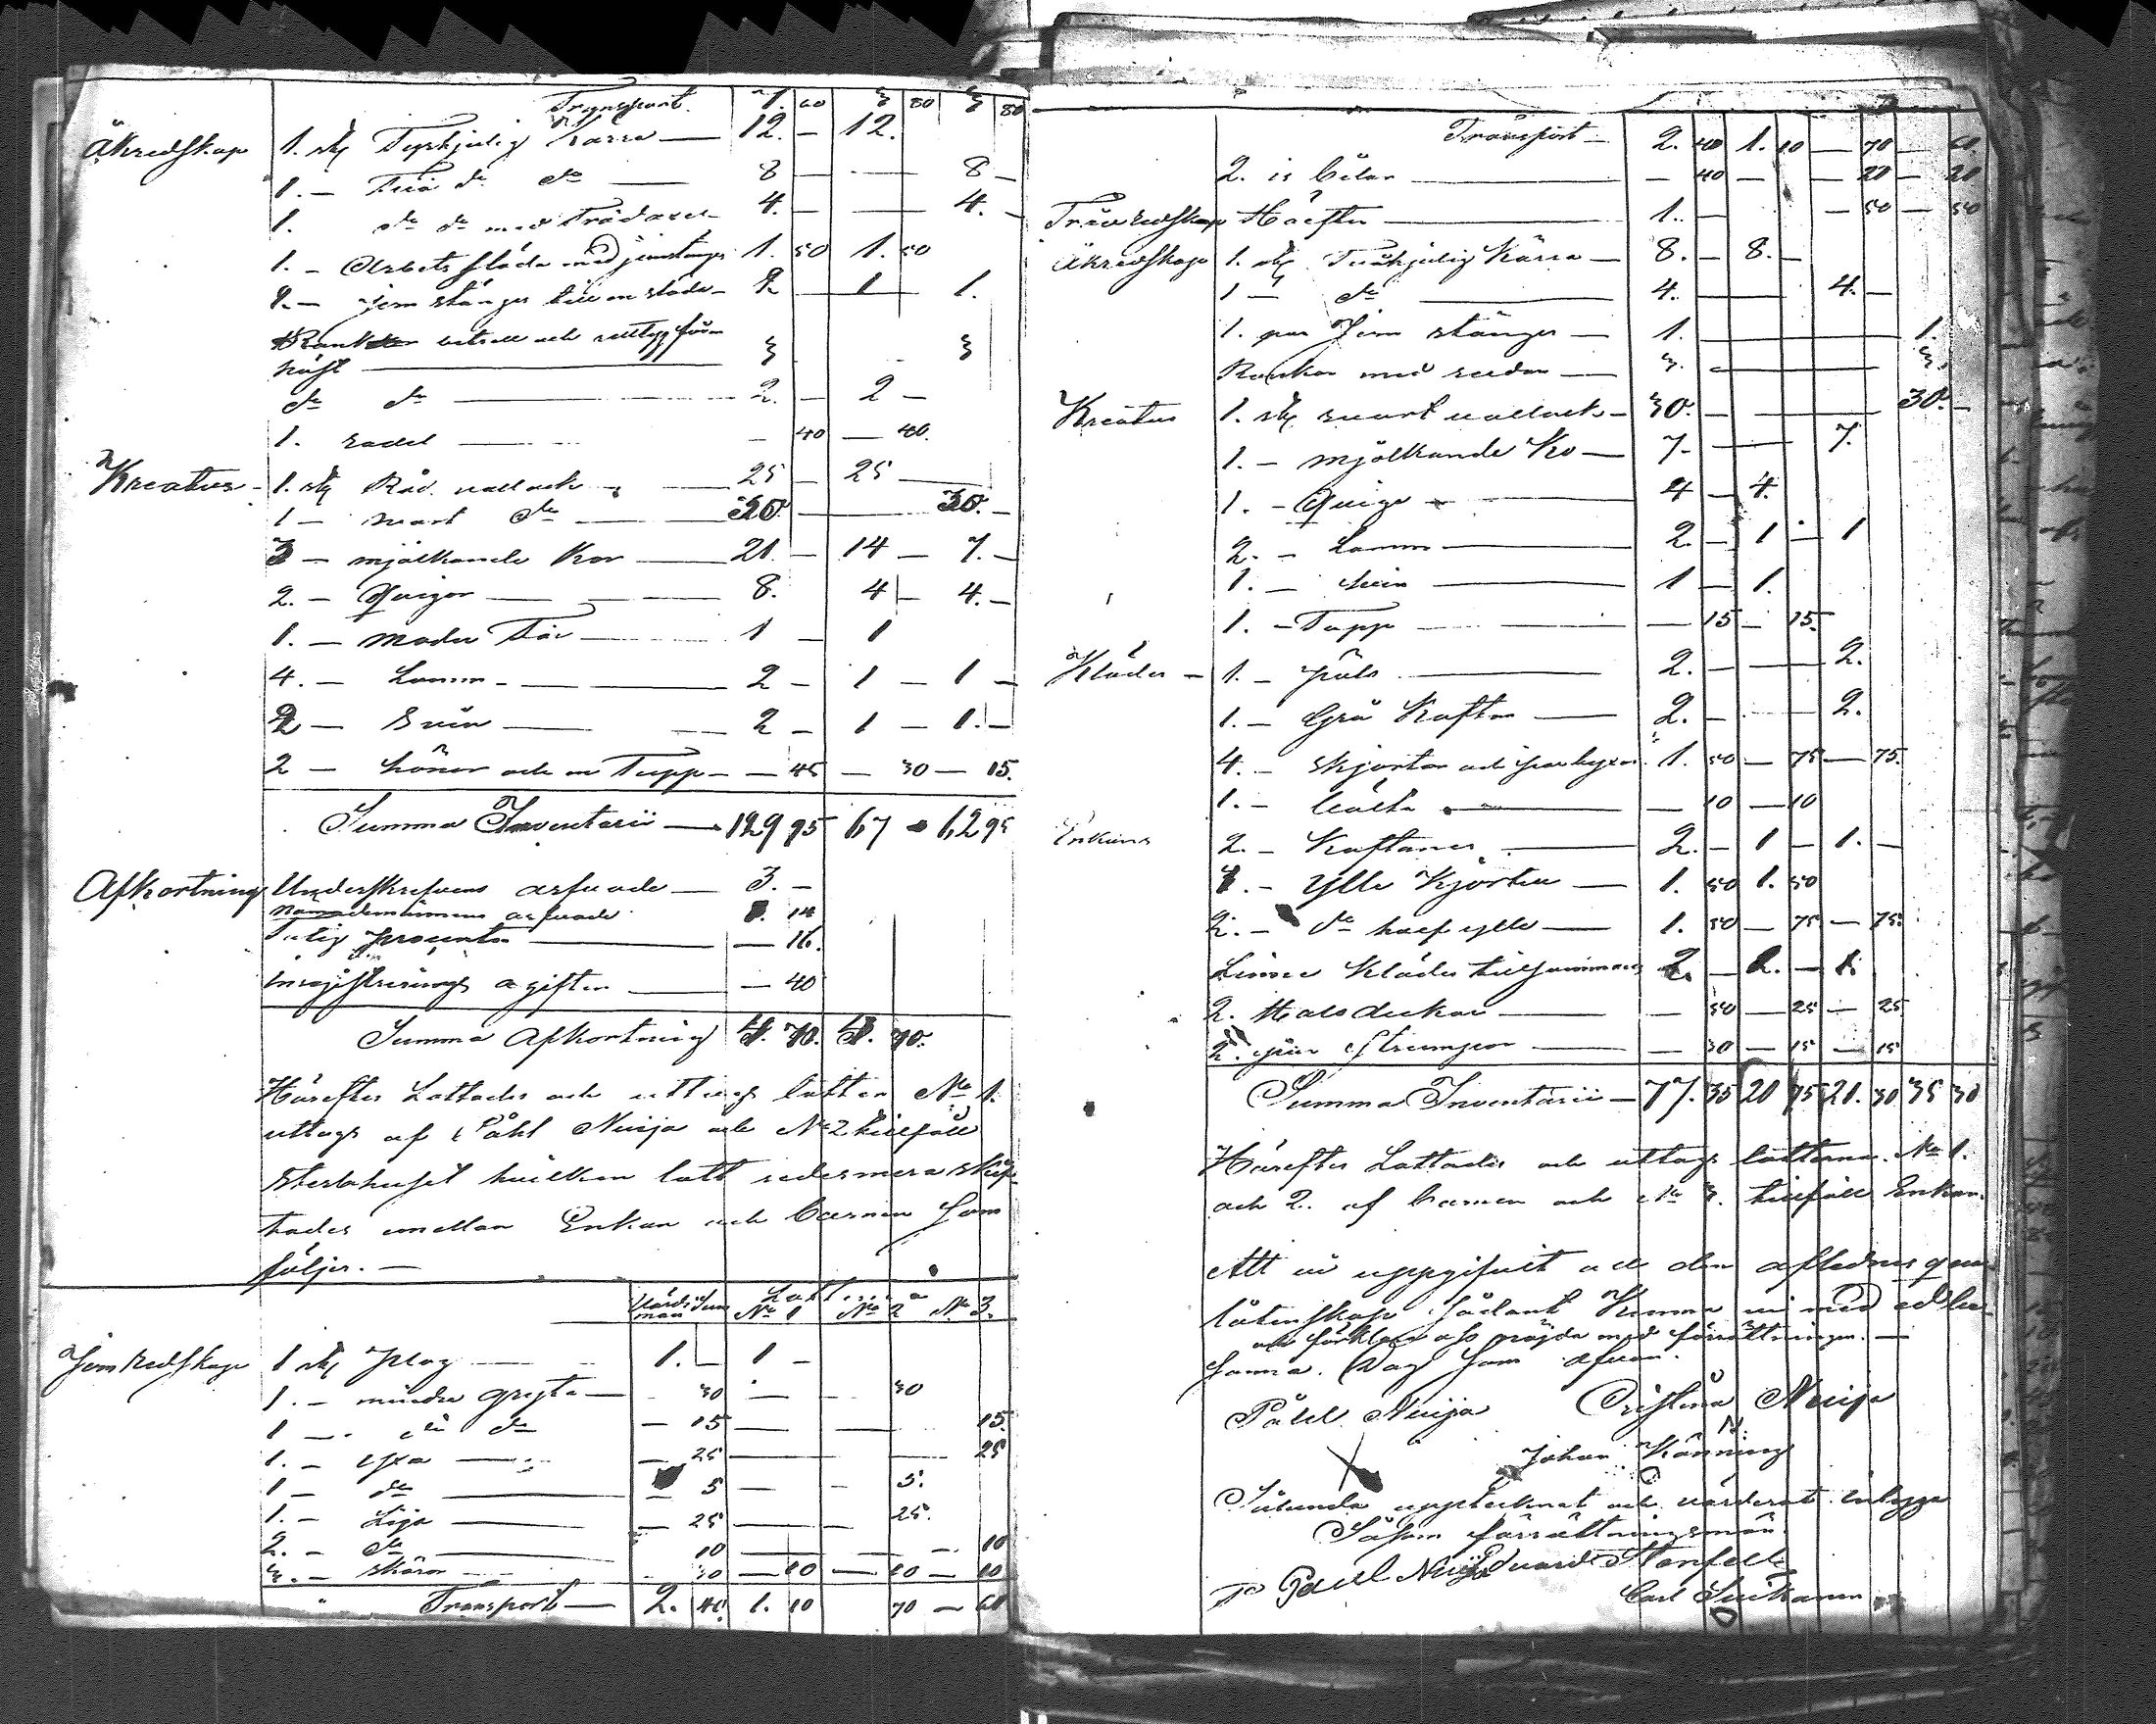 Transport. 7. 60 3 80 3 80
Åkredskap 1. stk Fyrhjulig Kärra — 12. — 12.
1. — Två do do — 8 — 8 —
1. do do med Trädaxel 4. — 4. —
1. — Arbets släda med jernstänger 1. 50 1. 50
2. — jern stänger till en släde — 2 — 1 1.
betsel och för
häst — 3 3
do do — 2. — 2 —
1. sadel — 40 — 40.
Kreatur — 1. stk Röd vallack — 25 — 25
1 — svart do — 30 — 30. —
3 — mjölkande Kor — 21. — 14 — 7. —
2. — Qvigor — 8. 4 — 4. —
1. — moder Får — 1 — 1
4. — Lamm — 2 — 1 — 1 —
2 — Svin — 2 — 1 — 1. —
2 — hönor och en Tupp — 45 — 30 — 15.
Summa Inventarii — 129 95 67 — 62 95
Afkortning Underskrefvens arfvode — 3. —
arfvode 14
procenten — 16.
inregistrerings agiften — 40
Summa Afkortning 70. 70.
Härefter Lottades och uttogs lotten No 1.
uttogs af Påhl Nuija och No 2 tillföll
Sterbhuset hvilken lott sedermera skif-
tades emellan Enkan och barnen som
följer. —
Värdesum Lotterna
man No 1 No 2 No 3.
Jernredskap 1 stk Plog — 1. — 1 —
1. — mindre gryta — 30 — 30
1 — do do — 15 — 15.
1. — yxa — 25 — 25
1 — do — 5 — 5.
1. — Lija — 25 — 25.
2. — do — 10 — 10
3. — skäror — 30 — 10 — 10 — 10
Transport — 2. 40. 1. 10 70 — 60
Transport — 2. 40 1. 10 — 70 — 60.
2. is bilar — 40 — 20 — 20
Träredskap Häcften — 1. — 50 — 50
Åkredskap 1. stk Tvåhjulig Kärra — 8. — 8. —
1 — do — 4. — 4. —
1. par Jern stänger — 1. — 1.
Rankor med sudan — 3. — 3.
Kreatur 1. stk svart vallack — 30. — 30. —
1. — mjölkande Ko — 7. — 7.
1. — Qviga — 4 — 4.
2. — Lamm — 2. — 1 — 1
1. — svin — 1 — 1.
1. — Tupp — 15 — 15.
Kläder — 1. — päls — 2. — 2.
1. — Grå Kaftan — 2. — 2.
4. — skjortor och par byxor 1. 50 — 75 — 75.
1. — bälte — 10 — 10
Enkans 2. — Kaftaner — 2. — 1 — 1. —
1. — Ylle Kjortel — 1. 50 1. 50
2. — do half ylle — 1. 50 — 75 — 75.
Linne Kläder tillsammans 2. — 1. — 1.
2. Halsdukar — 50 — 25 — 25
2. par strumpor — 30 — 15 — 15
Summa Inventarii — 77. 35 20 75 21. 30 35 30
Härefter Lottades och uttogs lotterna No 1.
och 2. af barnen och No 3. tillföll Enkan.
Att vi uppgifvit all den aflednes qvar-
låtenskap sådant Kunna vi med ed be-
och förklara oss nöjda med förrättningen. —
Samma Dag som ofvan.
Påhl Nuija Cristina Nuija
Johan Känning
Sålunda upptecknat och värderat intyga
Såsom förrättningsmän.
Paul Nuija Eduard Stenfelt
Carl Suikanen